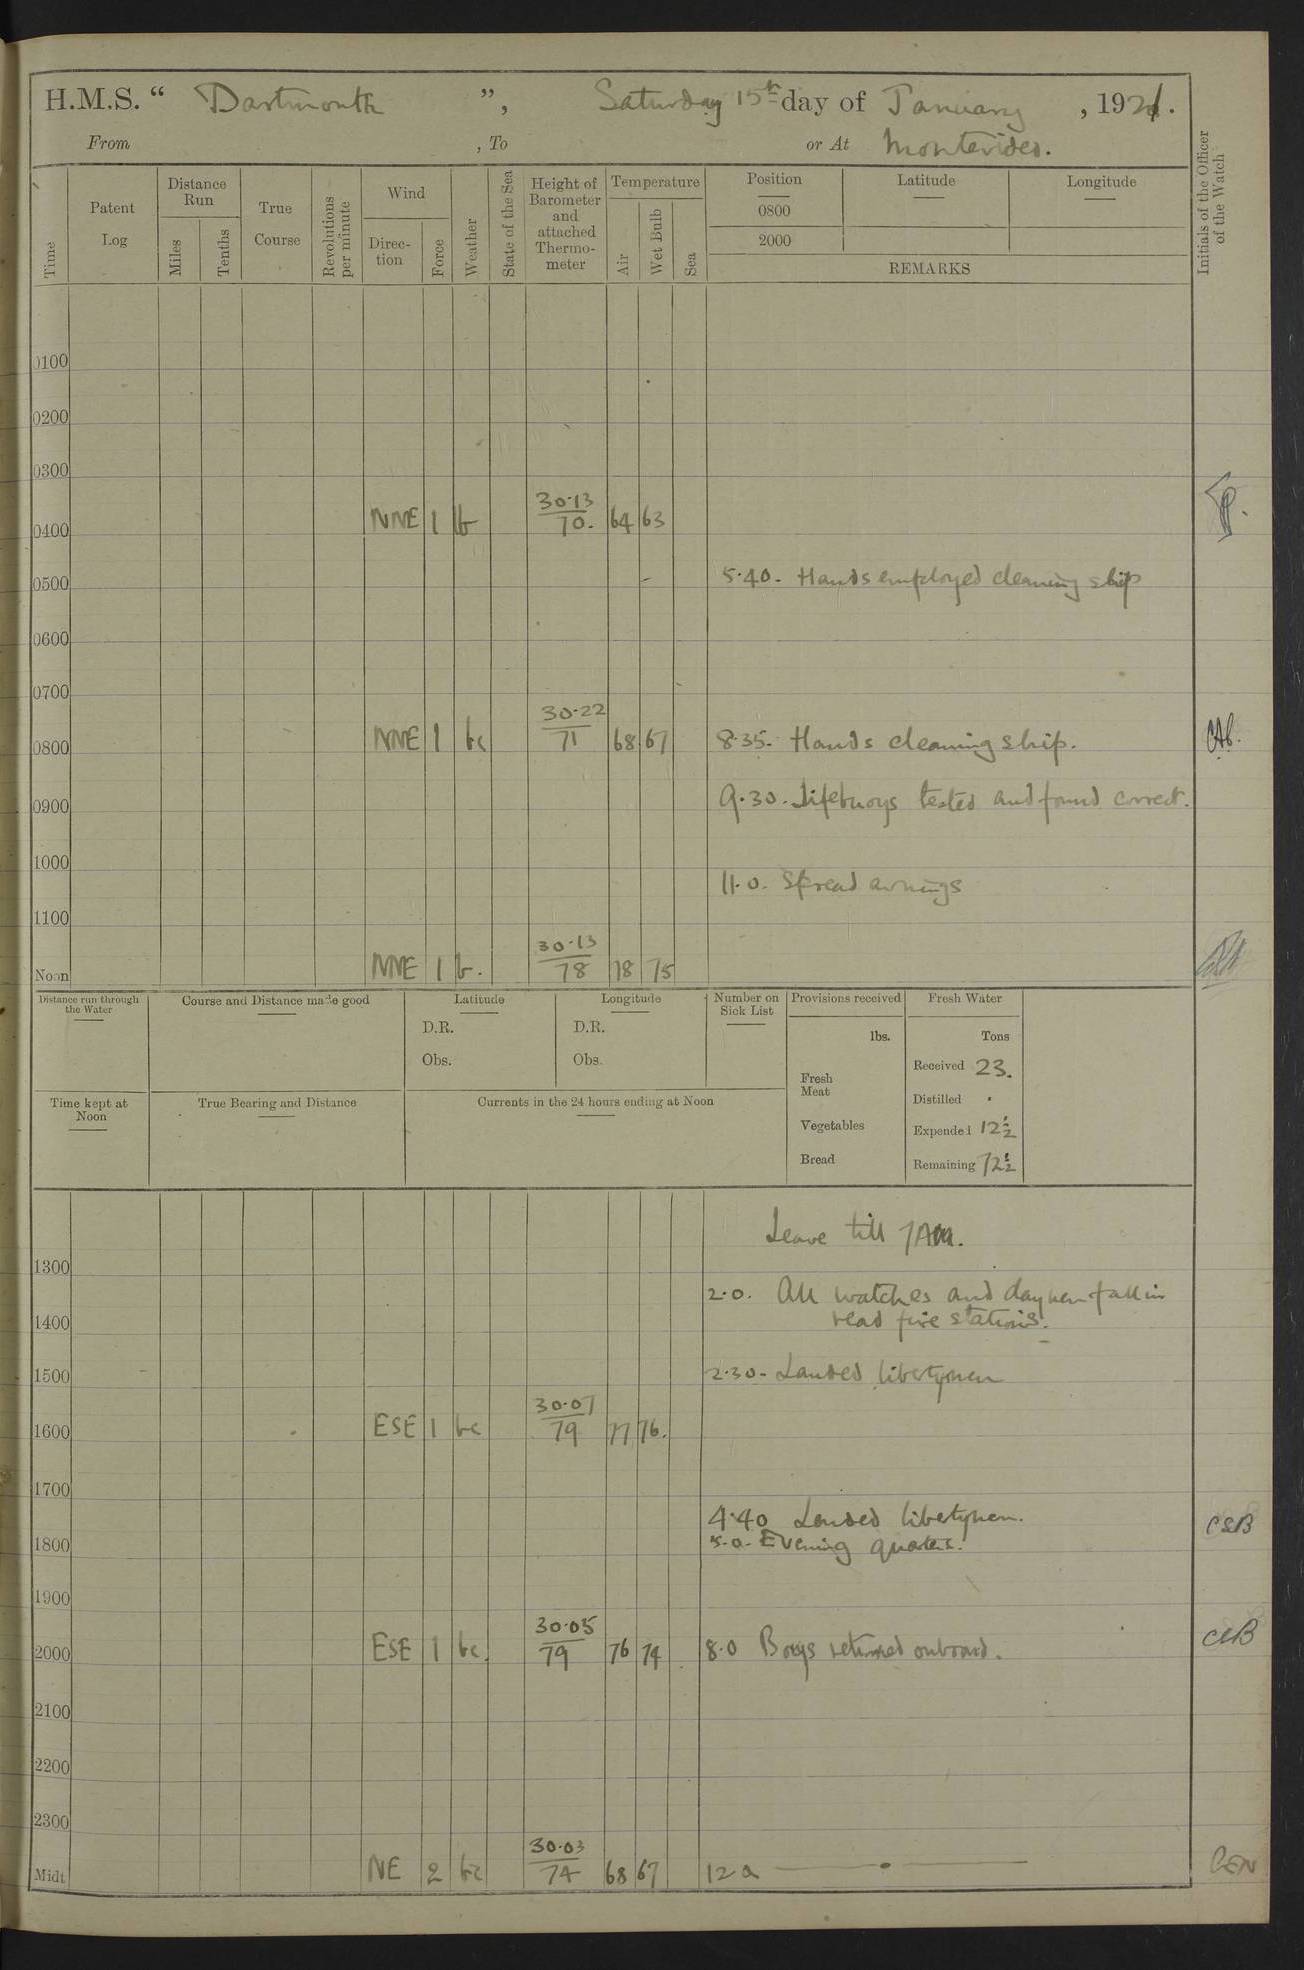 H.M.S. “ Dartmouth ”, Saturday 15th day of January , 1921.
From , To or At Montevideo.
Time
Patent Log
Distance Run
Miles
Tenths
True Course
Revolutions per minute
Wind
Direc-tion
Force
Weather
State of the Sea
Height of Barometer and attached Thermo-meter
Temperature
Air
Wet Bulb
Sea
Position
0800
2000
Latitude
Longitude
REMARKS
Initials of the Officer of the Watch
0100
0200
0300
0400 NNE 1 b 30·13 70. 64 63
0500 5·40. Hands employed cleaning ship
0600
0700
0800 NNE 1 bc 30·22 71 68 67 8·35. Hands cleaning ship.
0900 9·30. Lifebuoys tested and found correct.
1000
11·0. Spread awnings
1100
Noon NNE 1 b. 30·13 78 78 75
Distance run through the Water
Course and Distance made good
Latitude
D.R.
Obs.
Longitude
D.R.
Obs.
Number on Sick List
Provisions received
lbs.
Fresh Meat
Vegetables
Bread
Fresh Water
Tons
Received 23.
Distilled .
Expended 12½
Remaining 72½
Time kept at Noon
True Bearing and Distance
Currents in the 24 hours ending at Noon
Leave till 7AM.
1300
2·0. All watches and daymen fall in
1400 read fire stations.
1500 2·30- Landed libertymen
1600 ESE 1 bc 30·07 79 77 76.
1700
4·40 Landed libertymen.
1800 5·0- Evening quarters. CSB
1900
2000 ESE 1 bc. 30·05 79 76 74 8·0 Boys returned onboard.
2100
2200
2300
Midt. NE 2 bc 30·03 74 68 67 12 0